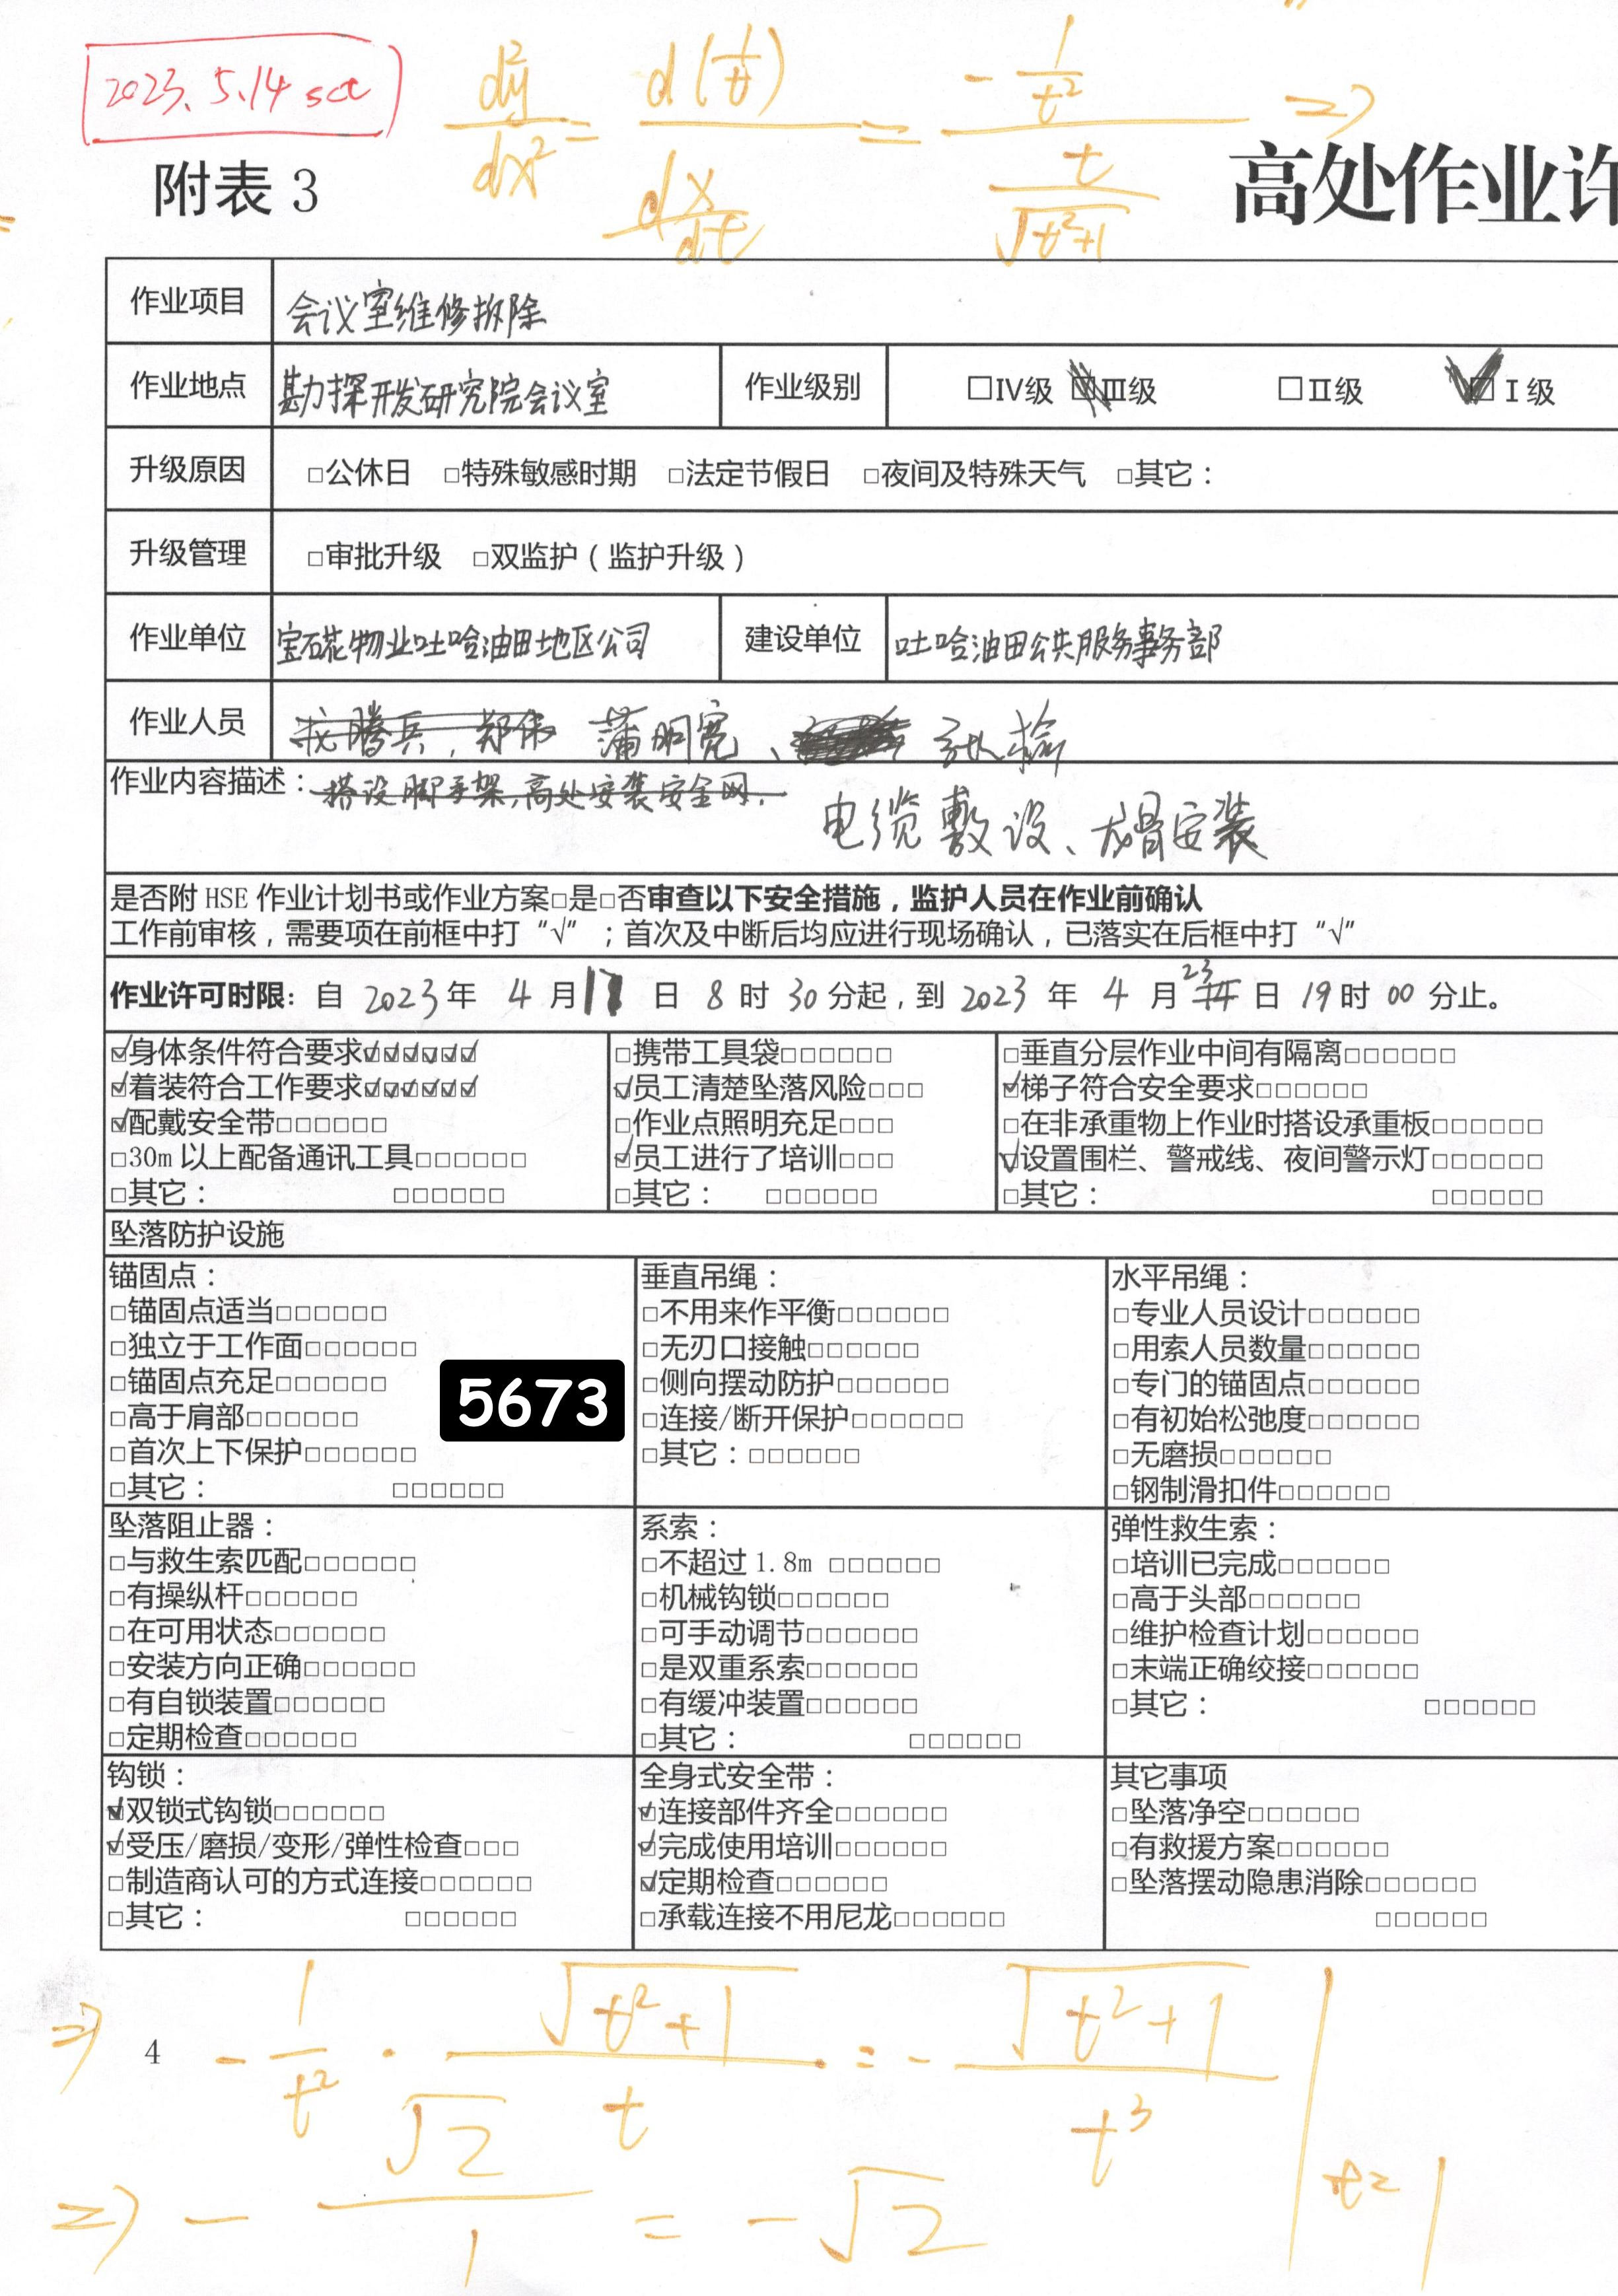 2023.5.14 sat
d²y/dx² = d(1/t)/(dx/dt) = -1/t² / (t/√(t²+1)) =>
附表 3
高处作业许
作业项目 会议室维修拆除
作业地点 勘探开发研究院会议室 作业级别 □IV级 □III级 □II级 ☑I级
升级原因 □公休日 □特殊敏感时期 □法定节假日 □夜间及特殊天气 □其它：
升级管理 □审批升级 □双监护（监护升级）
作业单位 宝石花物业吐哈油田地区公司 建设单位 吐哈油田公共服务事务部
作业人员 腾兵，郑伟 蒲明宽、
作业内容描述：搭设脚手架，高处安装安全网，
电缆敷设、龙骨安装
是否附 HSE 作业计划书或作业方案□是□否审查以下安全措施，监护人员在作业前确认
工作前审核，需要项在前框中打“√”；首次及中断后均应进行现场确认，已落实在后框中打“√”
作业许可时限：自 2023 年 4 月 日 8 时 30 分起，到 2023 年 4 月 23 日 19 时 00 分止。
☑身体条件符合要求☑☑☑☑☑☑ □携带工具袋□□□□□□ □垂直分层作业中间有隔离□□□□□□
☑着装符合工作要求☑☑☑☑☑☑ ☑员工清楚坠落风险□□□ ☑梯子符合安全要求□□□□□□
☑配戴安全带□□□□□□ □作业点照明充足□□□ □在非承重物上作业时搭设承重板□□□□□□
□30m 以上配备通讯工具□□□□□□ ☑员工进行了培训□□□ ☑设置围栏、警戒线、夜间警示灯□□□□□□
□其它： □□□□□□ □其它： □□□□□□ □其它： □□□□□□
坠落防护设施
锚固点：
□锚固点适当□□□□□□
□独立于工作面□□□□□□
□锚固点充足□□□□□□
□高于肩部□□□□□□
□首次上下保护□□□□□□
□其它： □□□□□□
5673
垂直吊绳：
□不用来作平衡□□□□□□
□无刃口接触□□□□□□
□侧向摆动防护□□□□□□
□连接/断开保护□□□□□□
□其它：□□□□□□
水平吊绳：
□专业人员设计□□□□□□
□用索人员数量□□□□□□
□专门的锚固点□□□□□□
□有初始松弛度□□□□□□
□无磨损□□□□□□
□钢制滑扣件□□□□□□
坠落阻止器：
□与救生索匹配□□□□□□
□有操纵杆□□□□□□
□在可用状态□□□□□□
□安装方向正确□□□□□□
□有自锁装置□□□□□□
□定期检查□□□□□□
系索：
□不超过 1.8m □□□□□□
□机械钩锁□□□□□□
□可手动调节□□□□□□
□是双重系索□□□□□□
□有缓冲装置□□□□□□
□其它： □□□□□□
弹性救生索：
□培训已完成□□□□□□
□高于头部□□□□□□
□维护检查计划□□□□□□
□末端正确绞接□□□□□□
□其它： □□□□□□
钩锁：
☑双锁式钩锁□□□□□□
☑受压/磨损/变形/弹性检查□□□
□制造商认可的方式连接□□□□□□
□其它： □□□□□□
全身式安全带：
☑连接部件齐全□□□□□□
☑完成使用培训□□□□□□
☑定期检查□□□□□□
□承载连接不用尼龙□□□□□□
其它事项
□坠落净空□□□□□□
□有救援方案□□□□□□
□坠落摆动隐患消除□□□□□□
□□□□□□
=> -1/t² · √(t²+1)/t = -√(t²+1)/t³ | t=1
4
=> -√2/1 = -√2